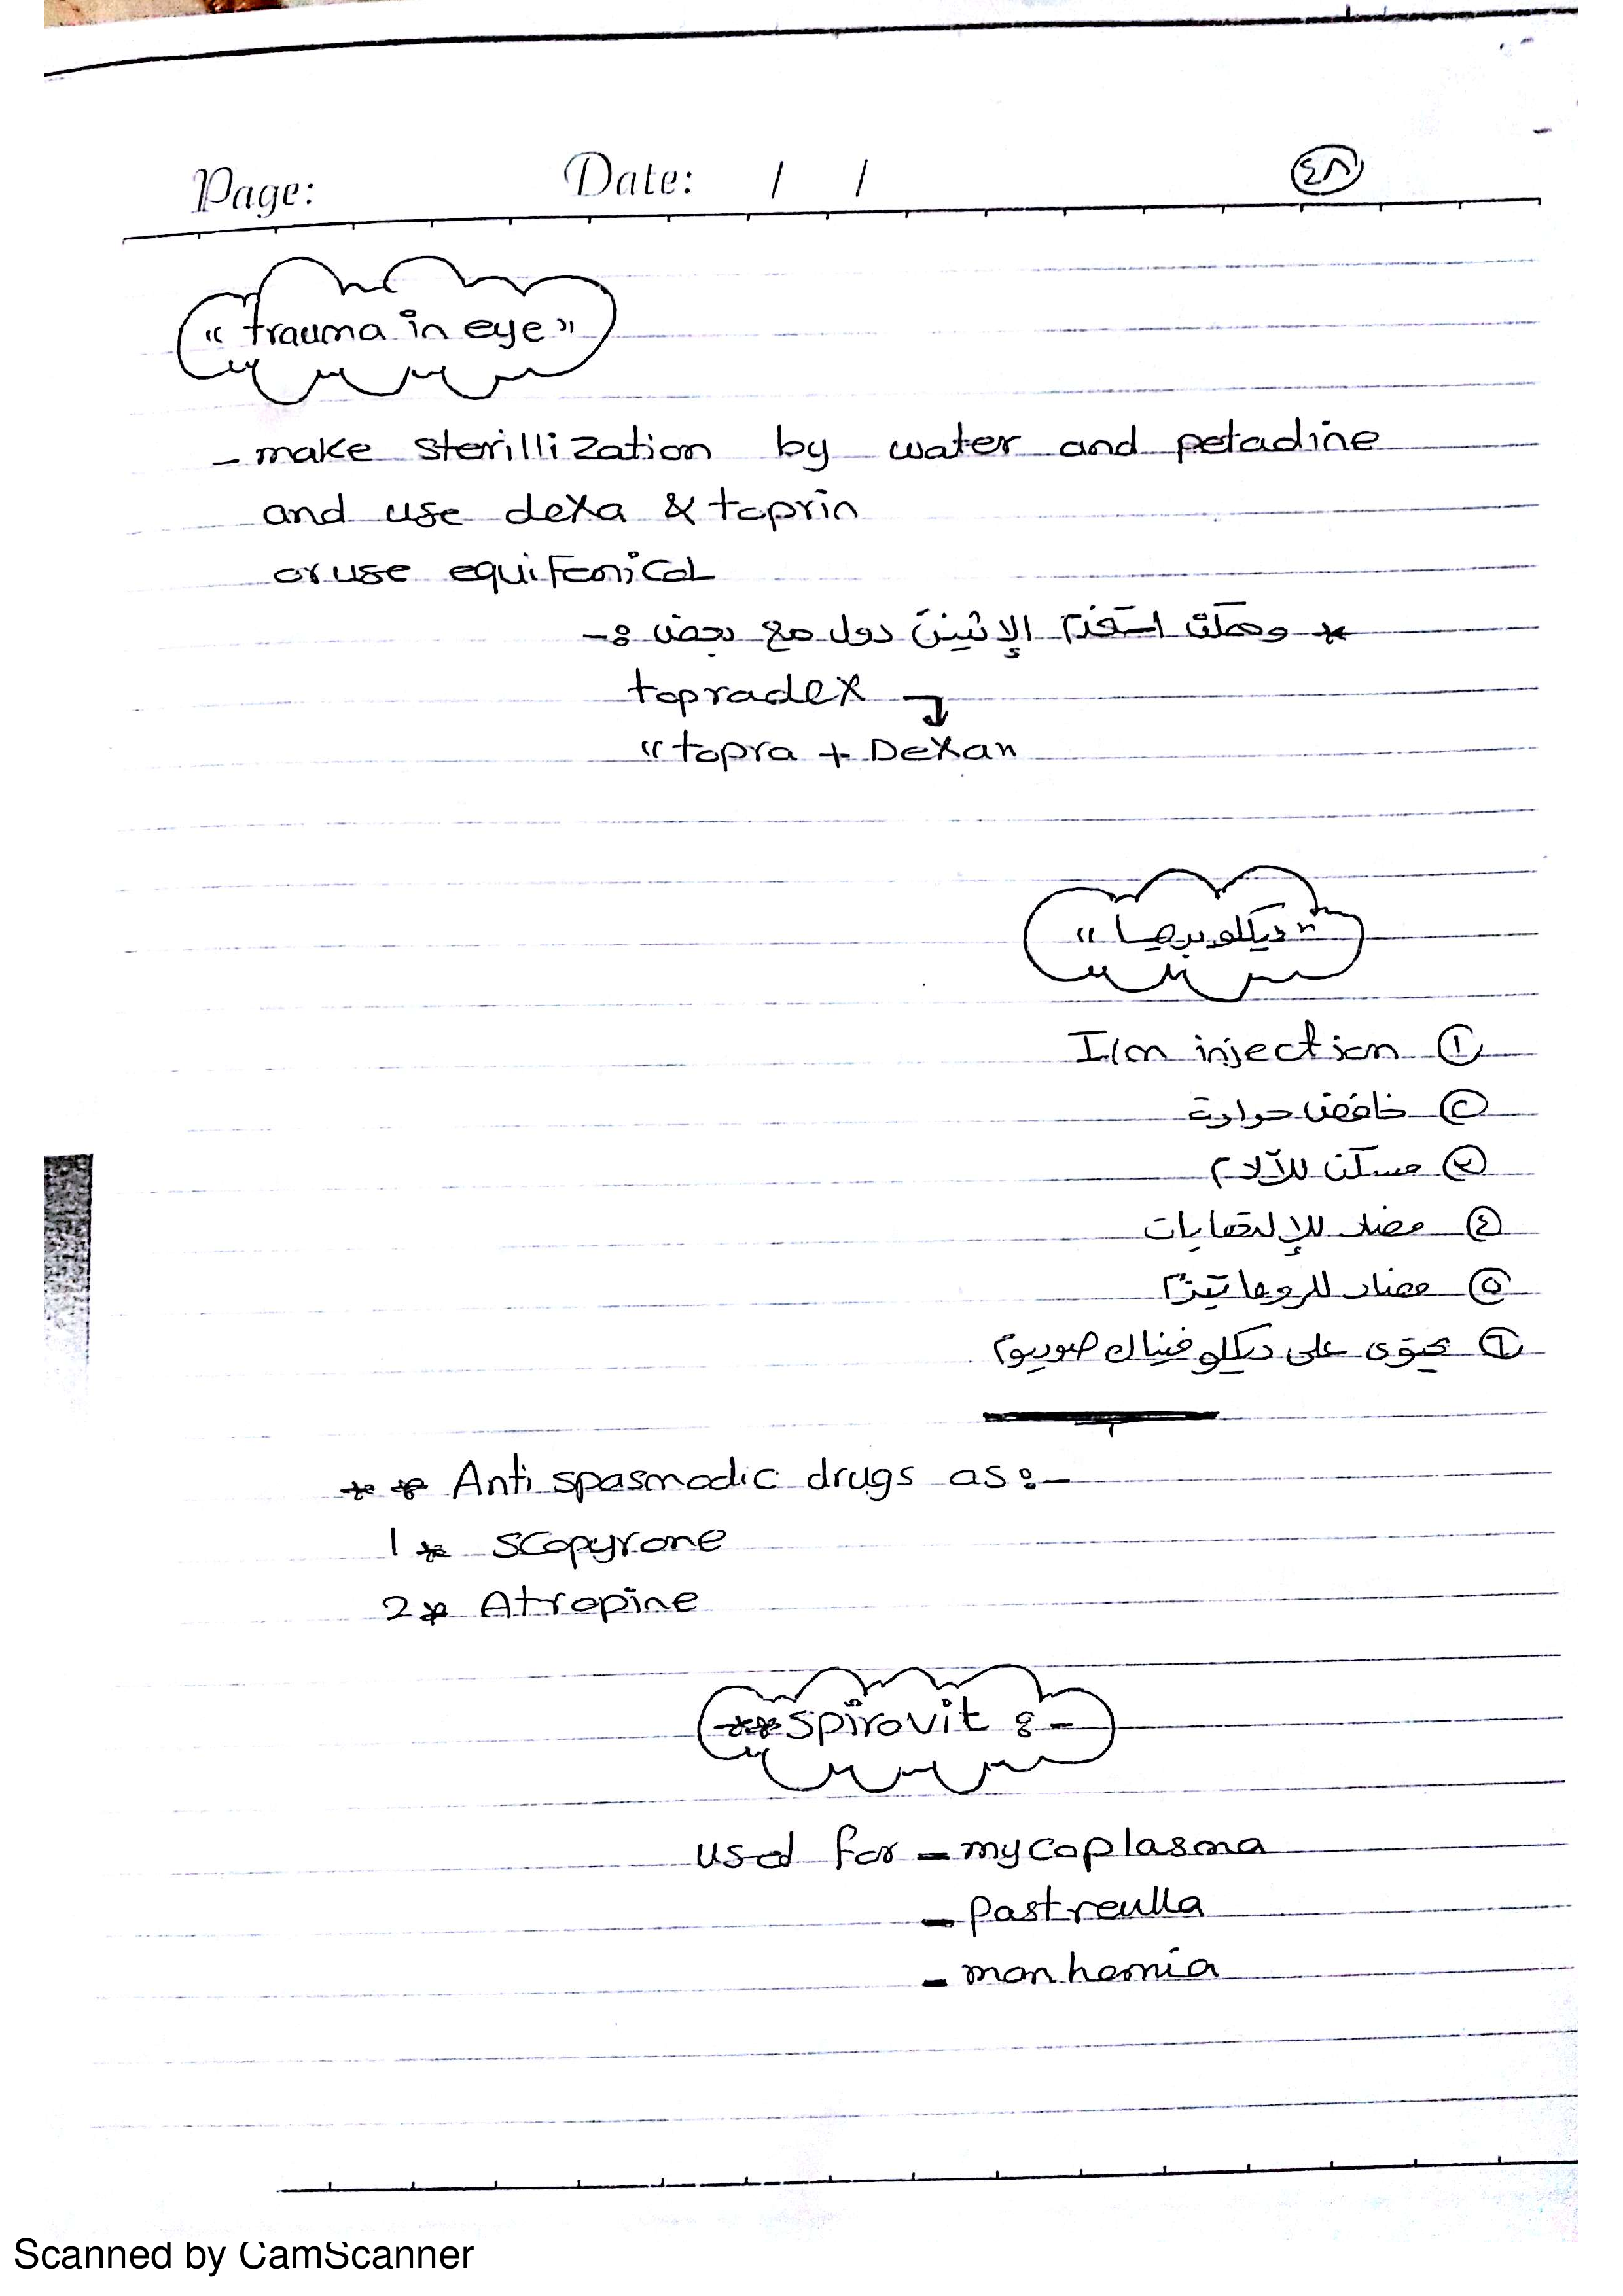 Page: Date: / / ٤٨
"trauma in eye"
- make sterillization by water and petadine
and use dexa & toprin
or use equifenicol
* وممكن استخدم الإثنين دول مع بعض :-
topradex
"topra + Dexan
"ديكلوبرما"
① I/m injection
② خافض حرارة
③ مسكن للآلام
④ مضاد للإلتهابات
⑤ مضاد للروماتيزم
⑥ يحتوى على ديكلوفيناك صوديوم
** Anti spasmodic drugs as:-
1* scopyrone
2* Atropine
** spirovit :-
used for - mycoplasma
- pastreulla
- manhemia
Scanned by CamScanner